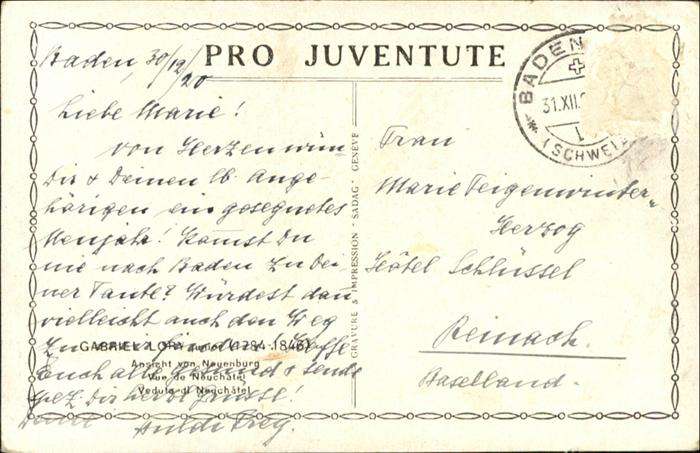 PRO JUVENTUTE
Baden, 30/12/20
Liebe Marie!
Von Herzen wün
Dir & Deinen lb. Ange-
hörigen ein gesegnetes
Neujahr! Kommst Du
nie nach Baden zu Dei-
ner Tante? Würdest dann
vielleicht auch den Weg
Zu
Hoffe
Euch alle gesund & sende
Dir herzl. Grüsse!
Huldi Frey.
GABRIEL LORY (1784-1846)
Ansicht von Neuenburg
Vue de Neuchâtel
Veduta di Neuchâtel
GRAVURE & IMPRESSION "SADAG" GENÈVE
BADEN
31.XII.
1
(SCHWEIZ)
Frau
Marie Feigenwinter-
Herzog
Hôtel Schlüssel
Reinach.
Baselland.